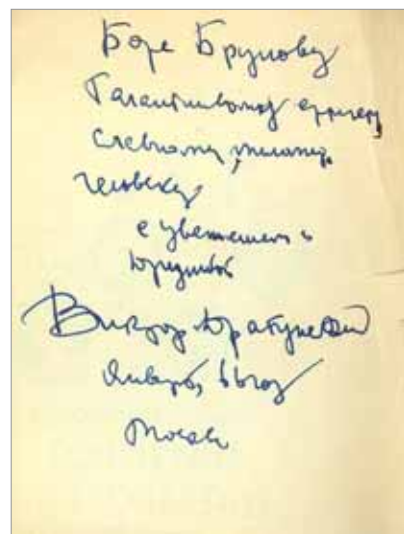 Боре Брунову
Талантливому
славному, милому
человеку
с уважением и
дружбой
Виктор Драгунский
Январь,
Москва